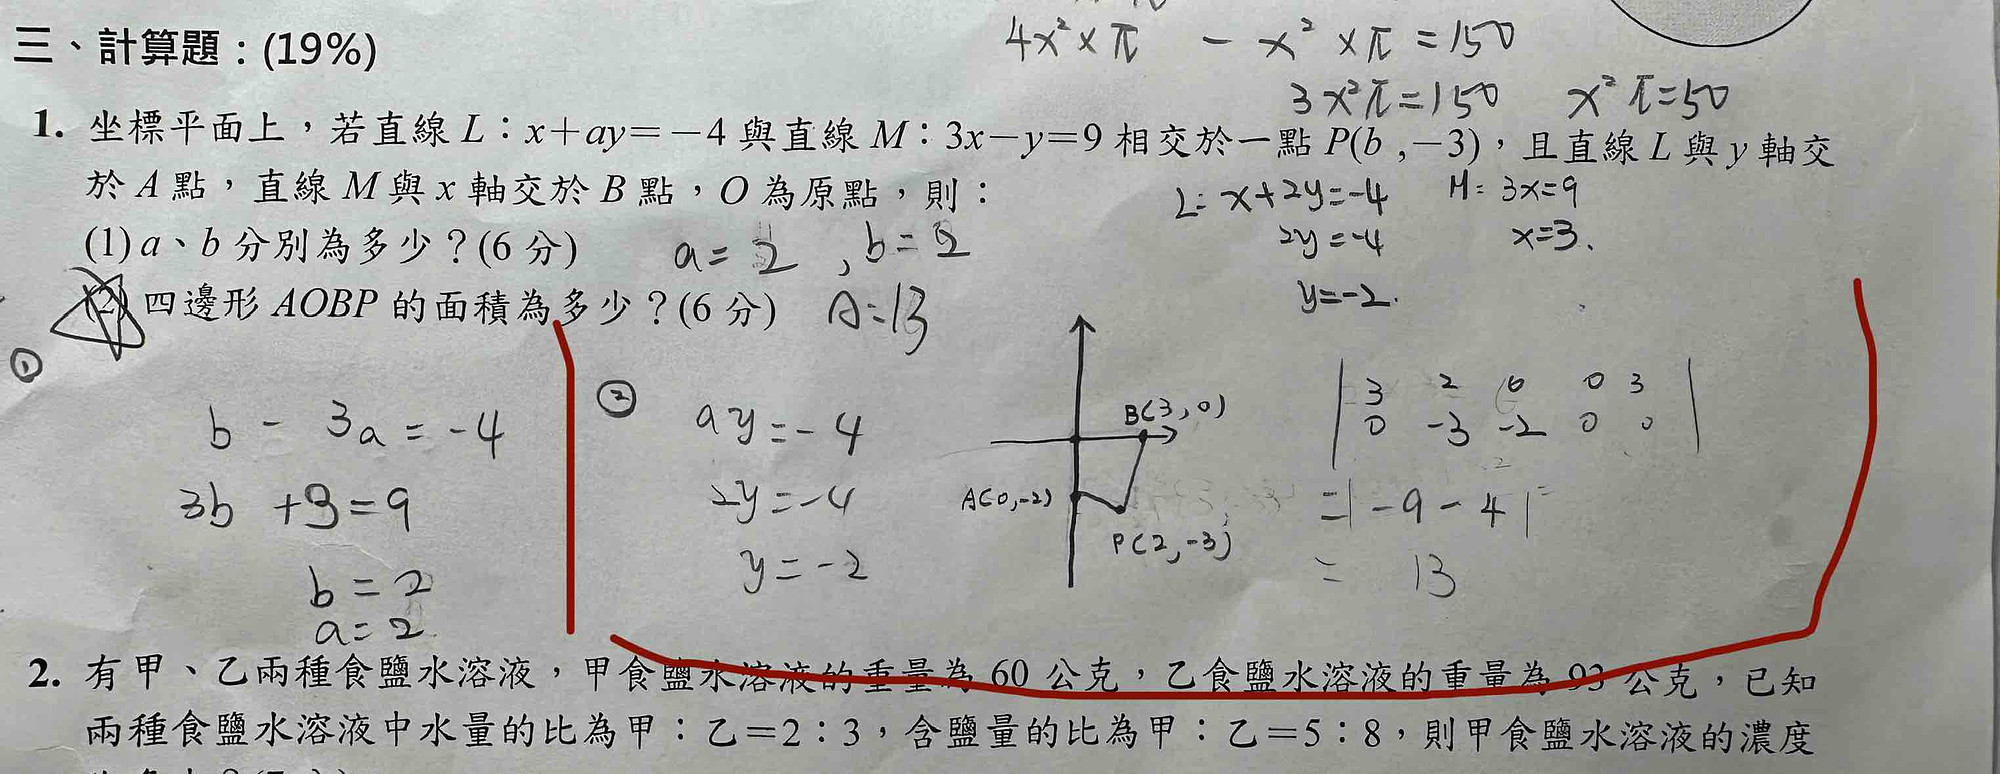 4x²×π - x²×π=150
三、計算題：(19%)
3x²π=150 x²π=50
1. 坐標平面上，若直線 L：x+ay=−4 與直線 M：3x−y=9 相交於一點 P(b ,−3)，且直線 L 與 y 軸交
於 A 點，直線 M 與 x 軸交於 B 點，O 為原點，則：
L: x+2y=-4 M: 3x=9
2y=-4 x=3.
y=-2.
(1) a、b 分別為多少？(6 分) a=2 , b=2
(2) 四邊形 AOBP 的面積為多少？(6 分) A=13
①
b - 3a = -4
3b +3=9
b=2
a=2
②
ay=-4
2y=-4
y=-2
B(3,0)
A(0,-2)
P(2,-3)
| 3 2 0 0 3 |
| 0 -3 -2 0 0 |
=|-9-4|
= 13
2. 有甲、乙兩種食鹽水溶液，甲食鹽水溶液的重量為 60 公克，乙食鹽水溶液的重量為 93 公克，已知
兩種食鹽水溶液中水量的比為甲：乙＝2：3，含鹽量的比為甲：乙＝5：8，則甲食鹽水溶液的濃度